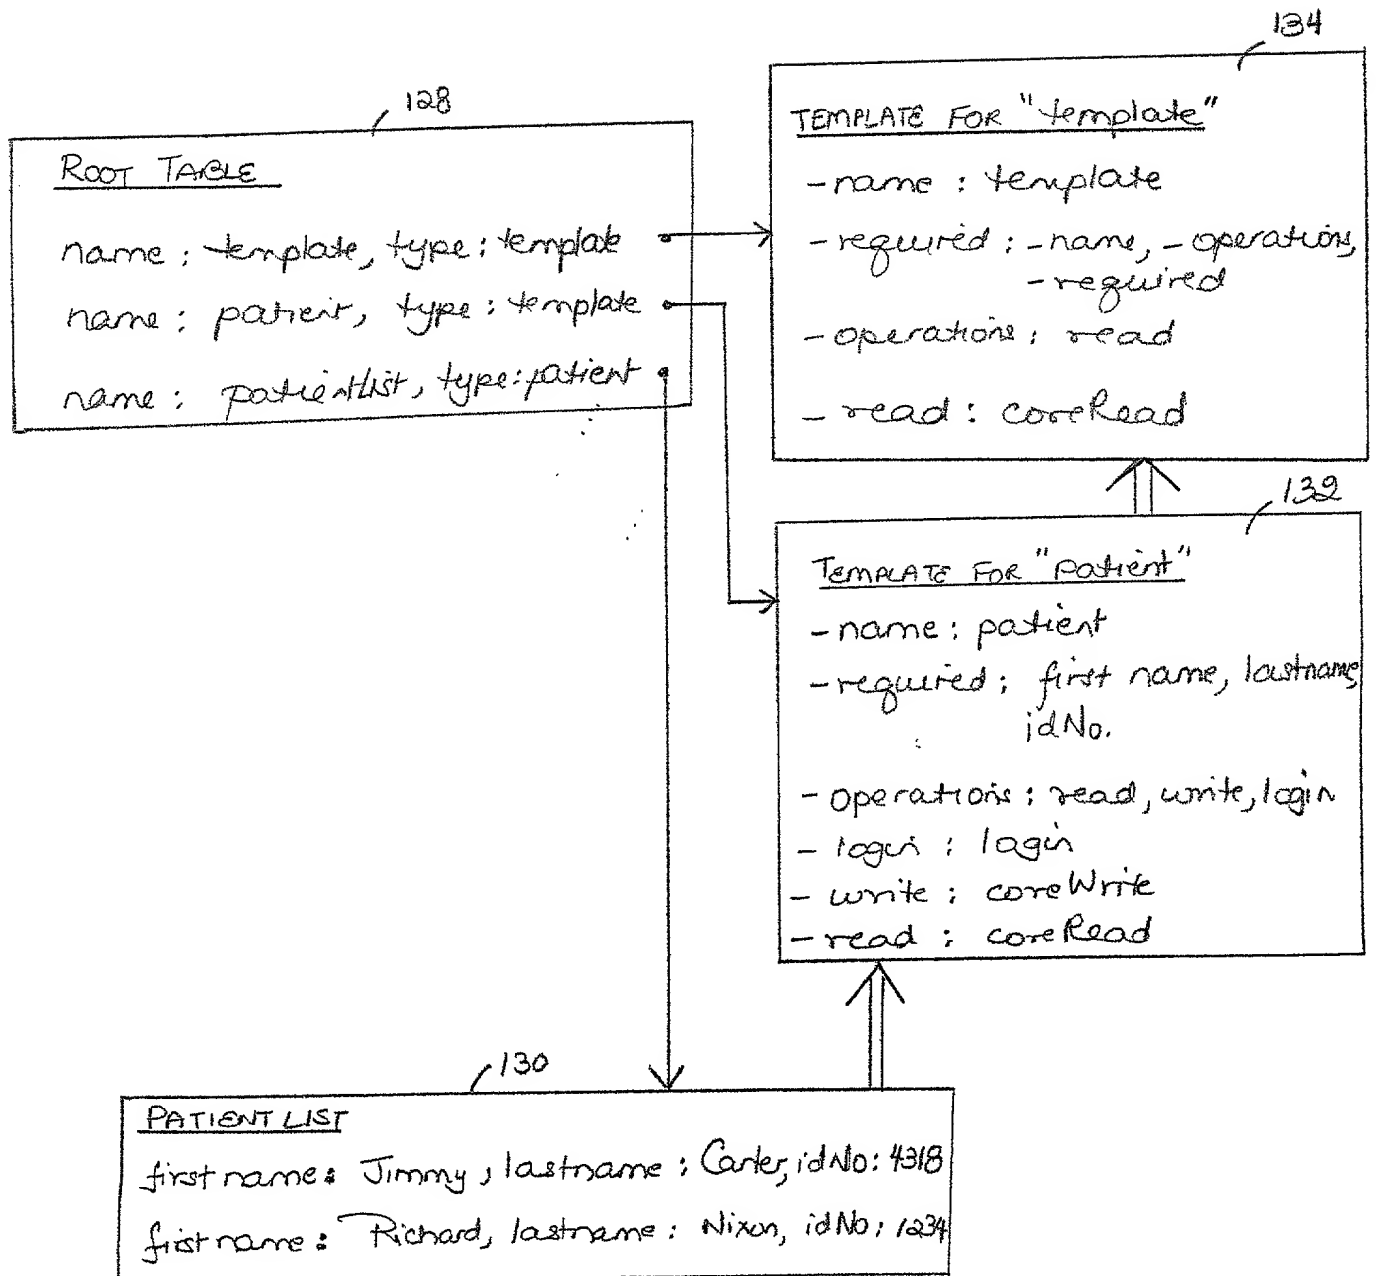 128
ROOT TABLE
name : template, type : template
name : patient, type : template
name : patientlist, type:patient
134
TEMPLATE FOR "template"
- name : template
- required : - name, - operations,
- required
- operations : read
- read : coreRead
132
TEMPLATE FOR "patient"
- name : patient
- required : first name, lastname,
idNo.
- operations : read, write, login
- login : login
- write : coreWrite
- read : coreRead
130
PATIENT LIST
first name : Jimmy, lastname : Carter, idNo: 4318
first name : Richard, lastname : Nixon, idNo: 1234